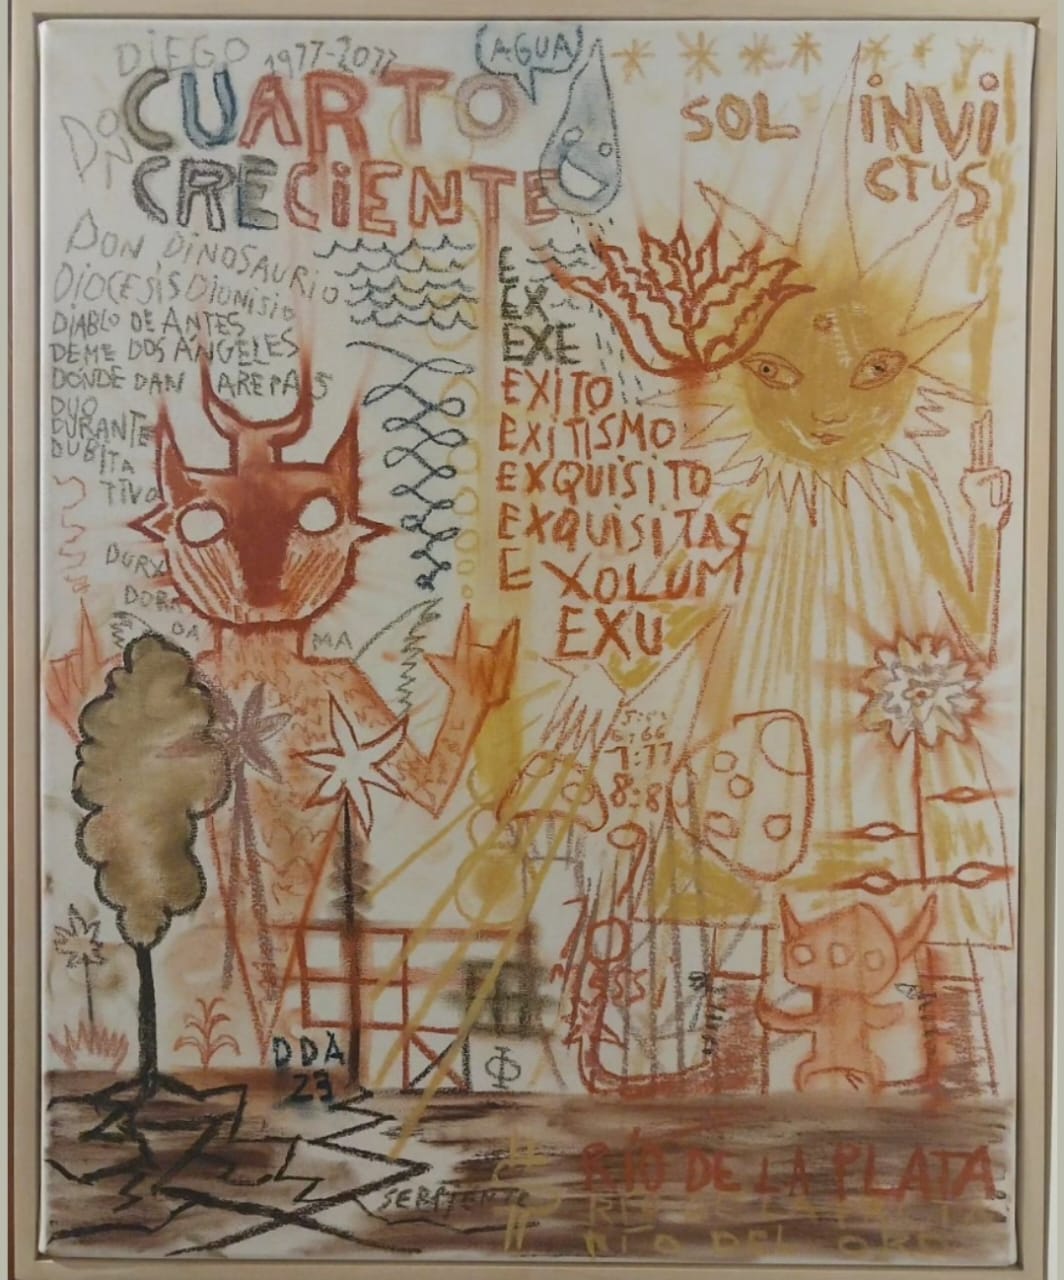 DIEGO 1977-2077
(AGUA)
DON
CUARTO
CRECIENTE
SOL INVI
CTUS
DON DINOSAURIO
DIOCESIS DIONISIO
DIABLO DE ANTES
DEME DOS ÁNGELES
DONDE DAN AREPAS
DUO
DURANTE
DUBITA
TIVO
DURX
DORA
DA MA
E
EX
EXE
EXITO
EXITISMO
EXQUISITO
EXQUISITAS
E XOLUM
EXU
7:77
8:8
9
DDA
23
Φ
SERPIENTE
RÍO DE LA PLATA
RÍO DE LA PLATA
RÍO DEL ORO